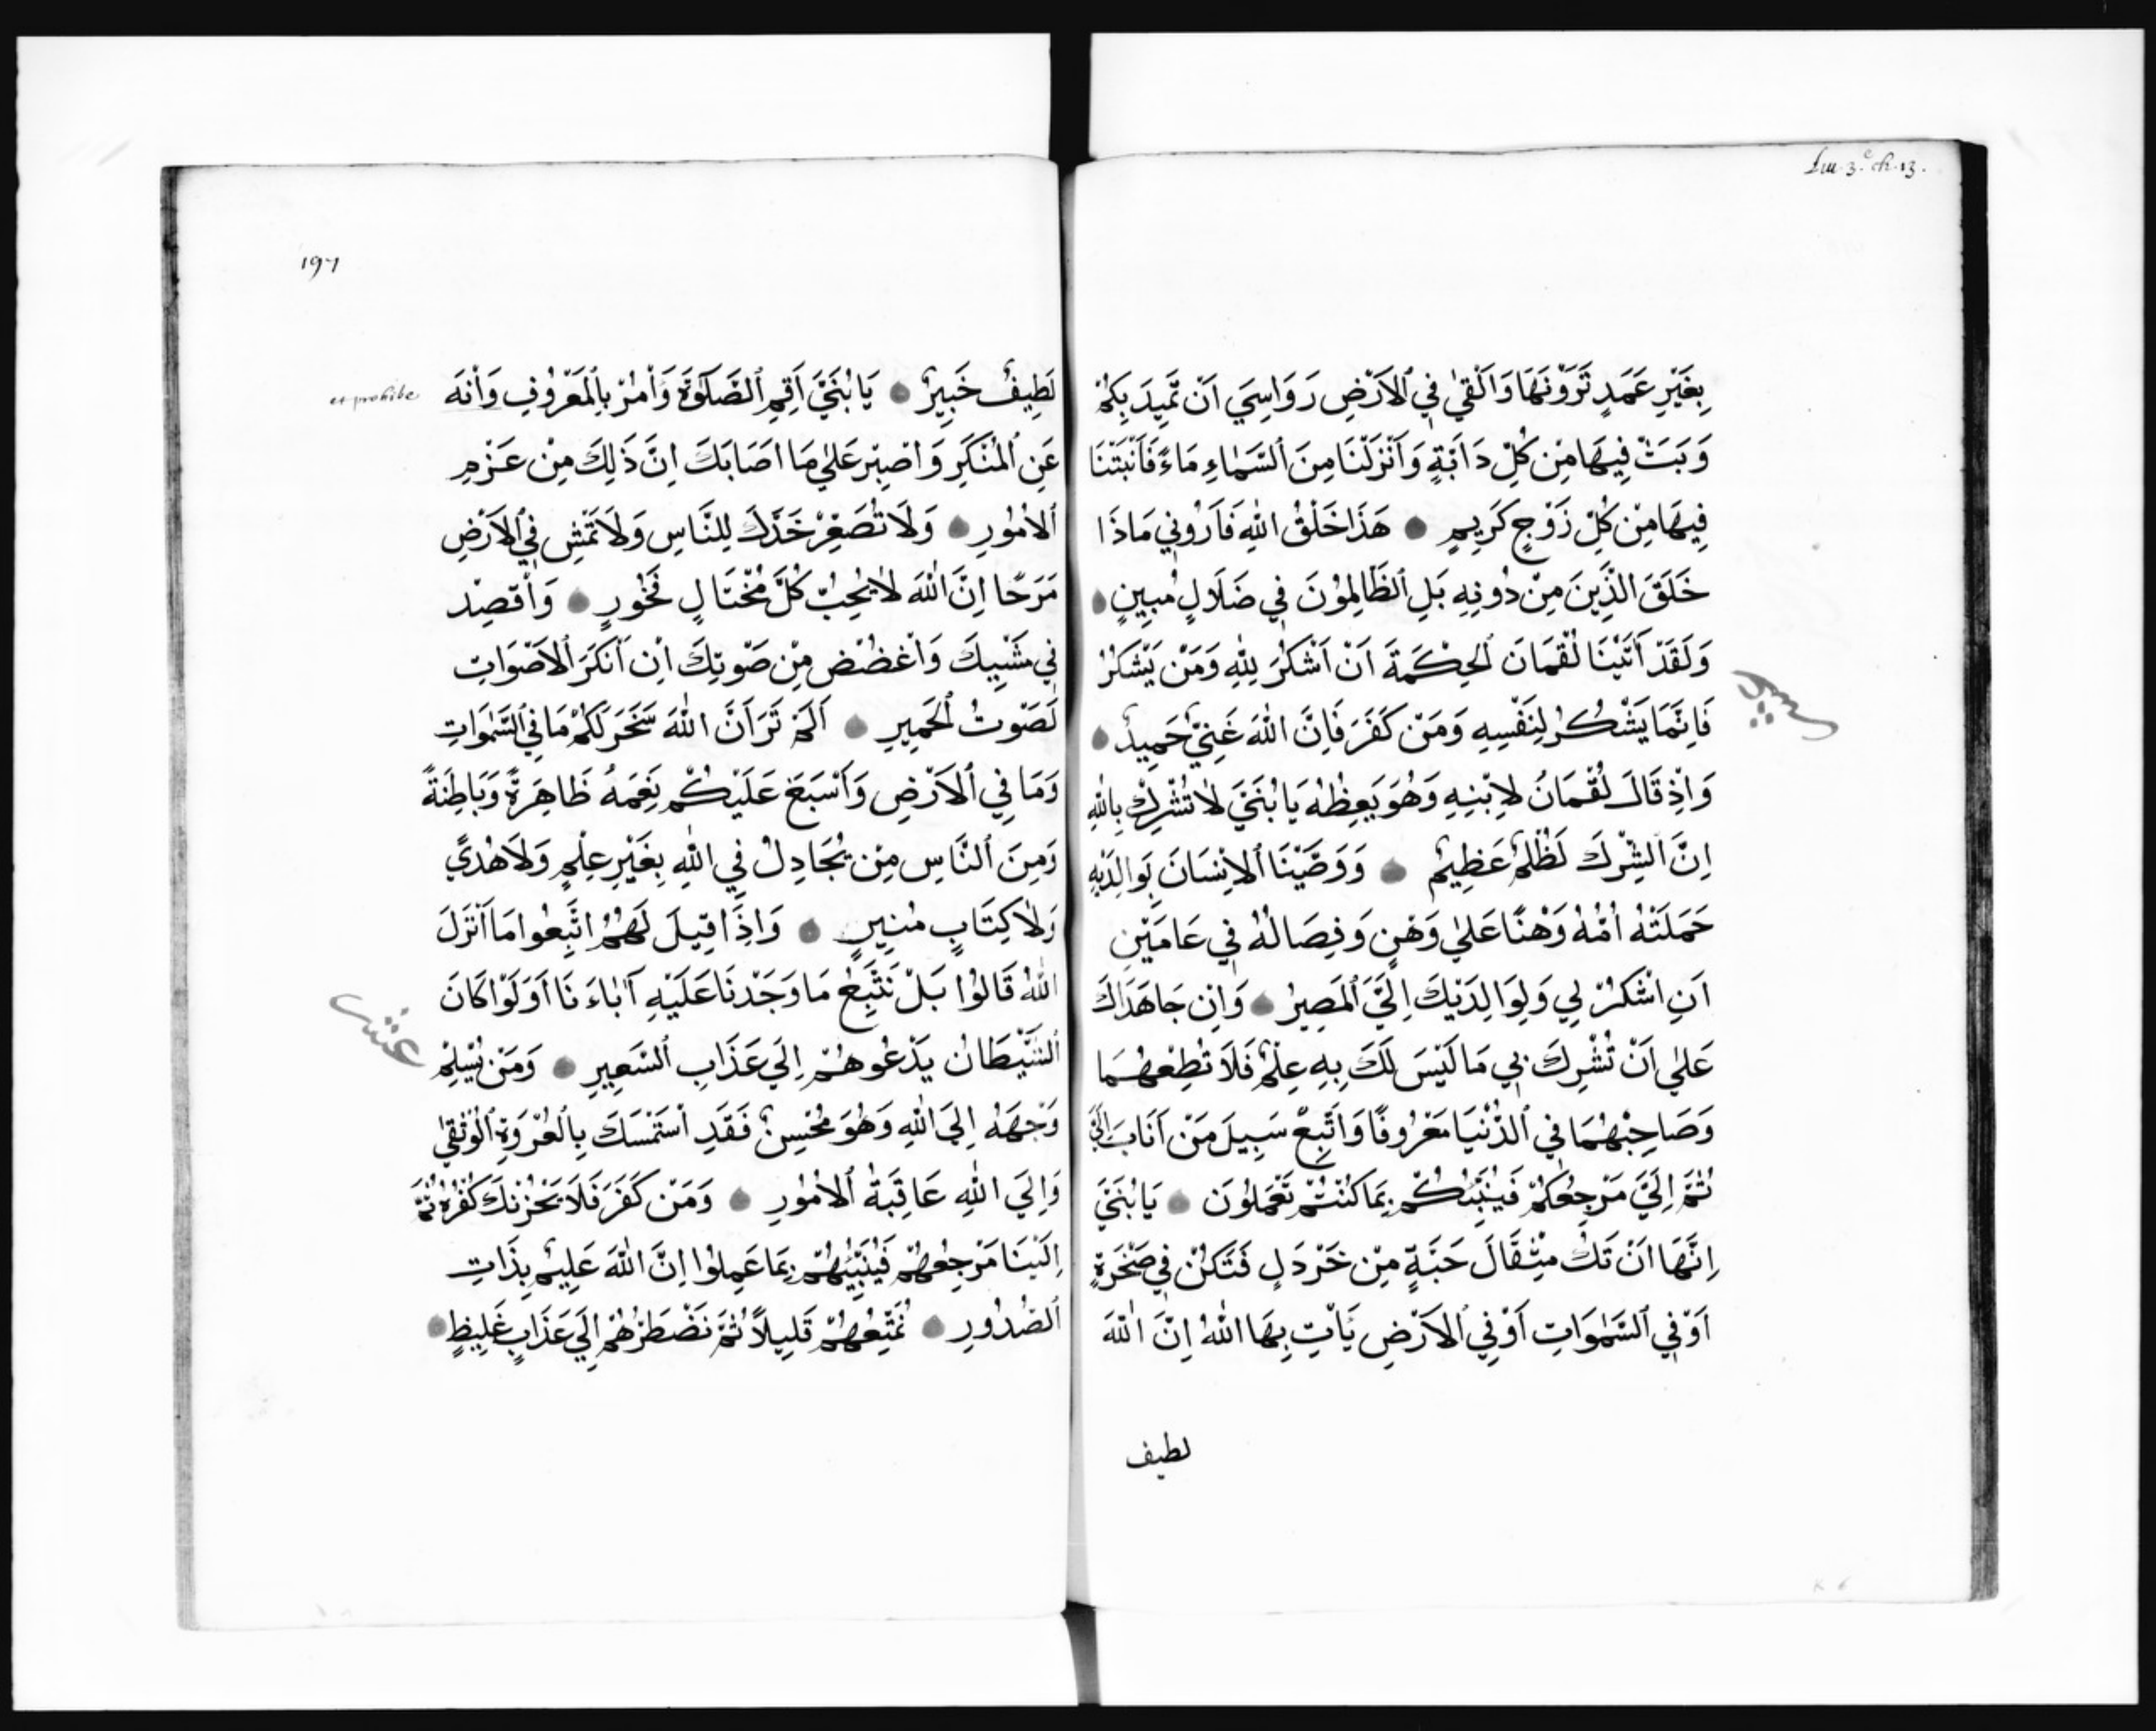 Liu. 3.e ch. 13.
بِغَيْرِ عَمَدٍ تَرَوْنَهَا وَاَلْقٰي فِي ٱلاَرْضِ رَوَاسِيَ اَنْ تَمِيدَ بِكُمْ
وَبَثَ فِيهَا مِنْ كُلِّ دَابَّةٍ وَاَنْزَلْنَا مِنَ ٱلسَّمٰاءِ مَاءً فَاَنْبَتْنَا
فِيهَا مِنْ كُلِّ زَوْجٍ كَرِيمٍ هَذَا خَلْقُ اللّٰهِ فَاَرُونِي مَاذَا
خَلَقَ الَّذِينَ مِنْ دُونِهِ بَلِ ٱلظَّالِمُونَ فِي ضَلَالٍ مُبِينٍ
وَلَقَدْ اَتَيْنَا لُقْمَانَ ٱلحِكْمَةَ اَنْ اَشْكُرَ لِلّٰهِ وَمَنْ يَشْكُرُ
فَاِنَّمَا يَشْكُرُ لِنَفْسِهِ وَمَنْ كَفَرَ فَاِنَّ اللّٰهَ غَنِيٌّ حَمِيدٌ
وَاِذْ قَالَ لُقْمَانُ لاِبْنِهِ وَهُوَ يَعِظُهُ يَا بُنَيَّ لاٰ تُشْرِكْ بِاللّٰهِ
اِنَّ ٱلشِّرْكَ لَظُلْمٌ عَظِيمٌ وَوَصَّيْنَا ٱلاِنْسَانَ بِوَالِدَيْهِ
حَمَلَتْهُ اُمُّهُ وَهْنًا عَلٰي وَهْنٍ وَفِصَالُهُ فِي عَامَيْنِ
اَنِ اشْكُرْ لِي وَلِوَالِدَيْكَ اِلَيَّ ٱلمَصِيرُ وَاِنْ جَاهَدَاكَ
عَلٰي اَنْ تُشْرِكَ بِي مَا لَيْسَ لَكَ بِهِ عِلْمٌ فَلَا تُطِعْهُمَا
وَصَاحِبْهُمَا فِي ٱلدُّنْيَا مَعْرُوفًا وَاَتَّبِعْ سَبِيلَ مَنْ اَنَابَ اِلَيَّ
ثُمَّ اِلَيَّ مَرْجِعُكُمْ فَيُنَبِّئُكُمْ بِمَا كُنْتُمْ تَعْمَلُونَ يَا بُنَيَّ
اِنَّهَا اَنْ تَكُ مِثْقَالَ حَبَّةٍ مِنْ خَرْدَلٍ فَتَكُنْ فِي صَخْرَةٍ
اَوْ فِي ٱلسَّمٰوَاتِ اَوْ فِي ٱلاَرْضِ يَأْتِ بِهَا اللّٰهُ اِنَّ اللّٰهَ
لطيف
197
et prohibe
لَطِيفٌ خَبِيرٌ يَا بُنَيَّ اَقِمِ ٱلصَّلَوٰةَ وَأْمُرْ بِٱلمَعْرُوفِ وَاَنْهَ
عَنِ ٱلمُنْكَرِ وَاصْبِر عَلٰي مَا اَصَابَكَ اِنَّ ذَلِكَ مِنْ عَزْمِ
ٱلاُمُورِ وَلَا تُصَعِّرْ خَدَّكَ لِلنَّاسِ وَلَا تَمْشِ فِي ٱلاَرْضِ
مَرَحًا اِنَّ اللّٰهَ لاٰ يُحِبُّ كُلَّ مُخْتَالٍ فَخُورٍ وَاَقْصِدْ
فِي مَشْيِكَ وَاَغْضُضْ مِنْ صَوْتِكَ اِنْ اَنْكَرَ ٱلاَصْوَاتِ
لَصَوْتُ ٱلحَمِيرِ اَلَمْ تَرَ اَنَّ اللّٰهَ سَخَّرَ لَكُمْ مَا فِي ٱلسَّمٰوَاتِ
وَمَا فِي ٱلاَرْضِ وَاَسْبَغَ عَلَيْكُمْ نِعَمَهُ ظَاهِرَةً وَبَاطِنَةً
وَمِنَ ٱلنَّاسِ مِنْ يُجَادِلُ فِي اللّٰهِ بِغَيْرِ عِلْمٍ وَلَا هُدًي
وَلاٰ كِتَابٍ مُنِيرٍ وَاِذَا قِيلَ لَهُمُ اتَّبِعُوا مَا اَنْزَلَ
اللّٰهُ قَالُوا بَلْ نَتَّبِعُ مَا وَجَدْنَا عَلَيْهِ آبَاءَنَا اَوَلَوْ كَانَ
ٱلشَّيْطَانُ يَدْعُوهُمْ اِلَي عَذَابِ ٱلسَّعِيرِ وَمَنْ يُسْلِمْ
عشر
وَجْهَهُ اِلَي اللّٰهِ وَهُوَ مُحْسِنٌ فَقَدِ اسْتَمْسَكَ بِٱلعُرْوَةِ ٱلوُثْقٰي
وَاِلَي اللّٰهِ عَاقِبَةُ ٱلاُمُورِ وَمَنْ كَفَرَ فَلَا يَحْزُنْكَ كُفْرُهُ ثُمَّ
اِلَيْنَا مَرْجِعُهُمْ فَيُنَبِّئُهُمْ بِمَا عَمِلُوا اِنَّ اللّٰهَ عَلِيمٌ بِذَاتِ
ٱلصُّدُورِ نُمَتِّعُهُمْ قَلِيلًا ثُمَّ نَضْطَرُّهُمْ اِلَي عَذَابٍ غَلِيظٍ